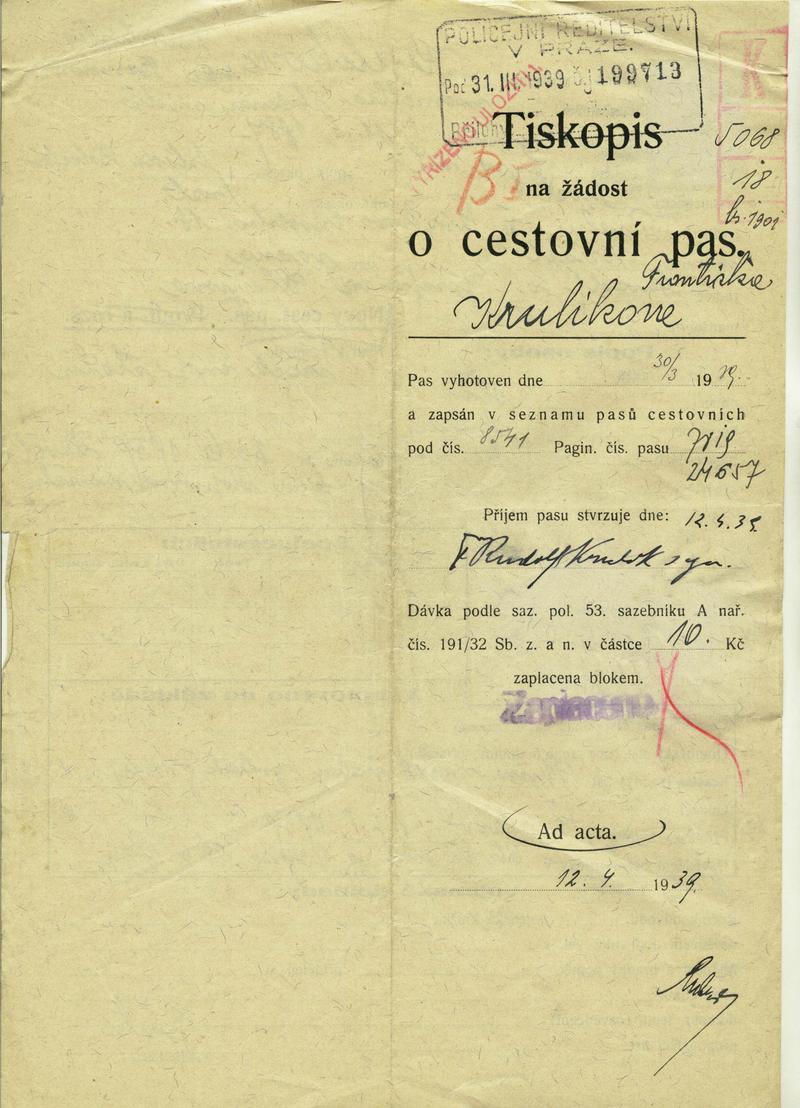 POLICEJNÍ ŘEDITELSTVÍ
V PRAZE.
31. III. 1939 199713
Tiskopis
5068
na žádost
18
o cestovní pas.
Krulikove
Pas vyhotoven dne 30/3 19
a zapsán v seznamu pasů cestovních
pod čís. 8541 Pagin. čís. pasu
24657
Příjem pasu stvrzuje dne: 12. 4. 39.
Rudolf
Dávka podle saz. pol. 53. sazebníku A nař.
čís. 191/32 Sb. z. a n. v částce 10. Kč
zaplacena blokem.
Zaplaceno
Ad acta.
12. 4. 1939.